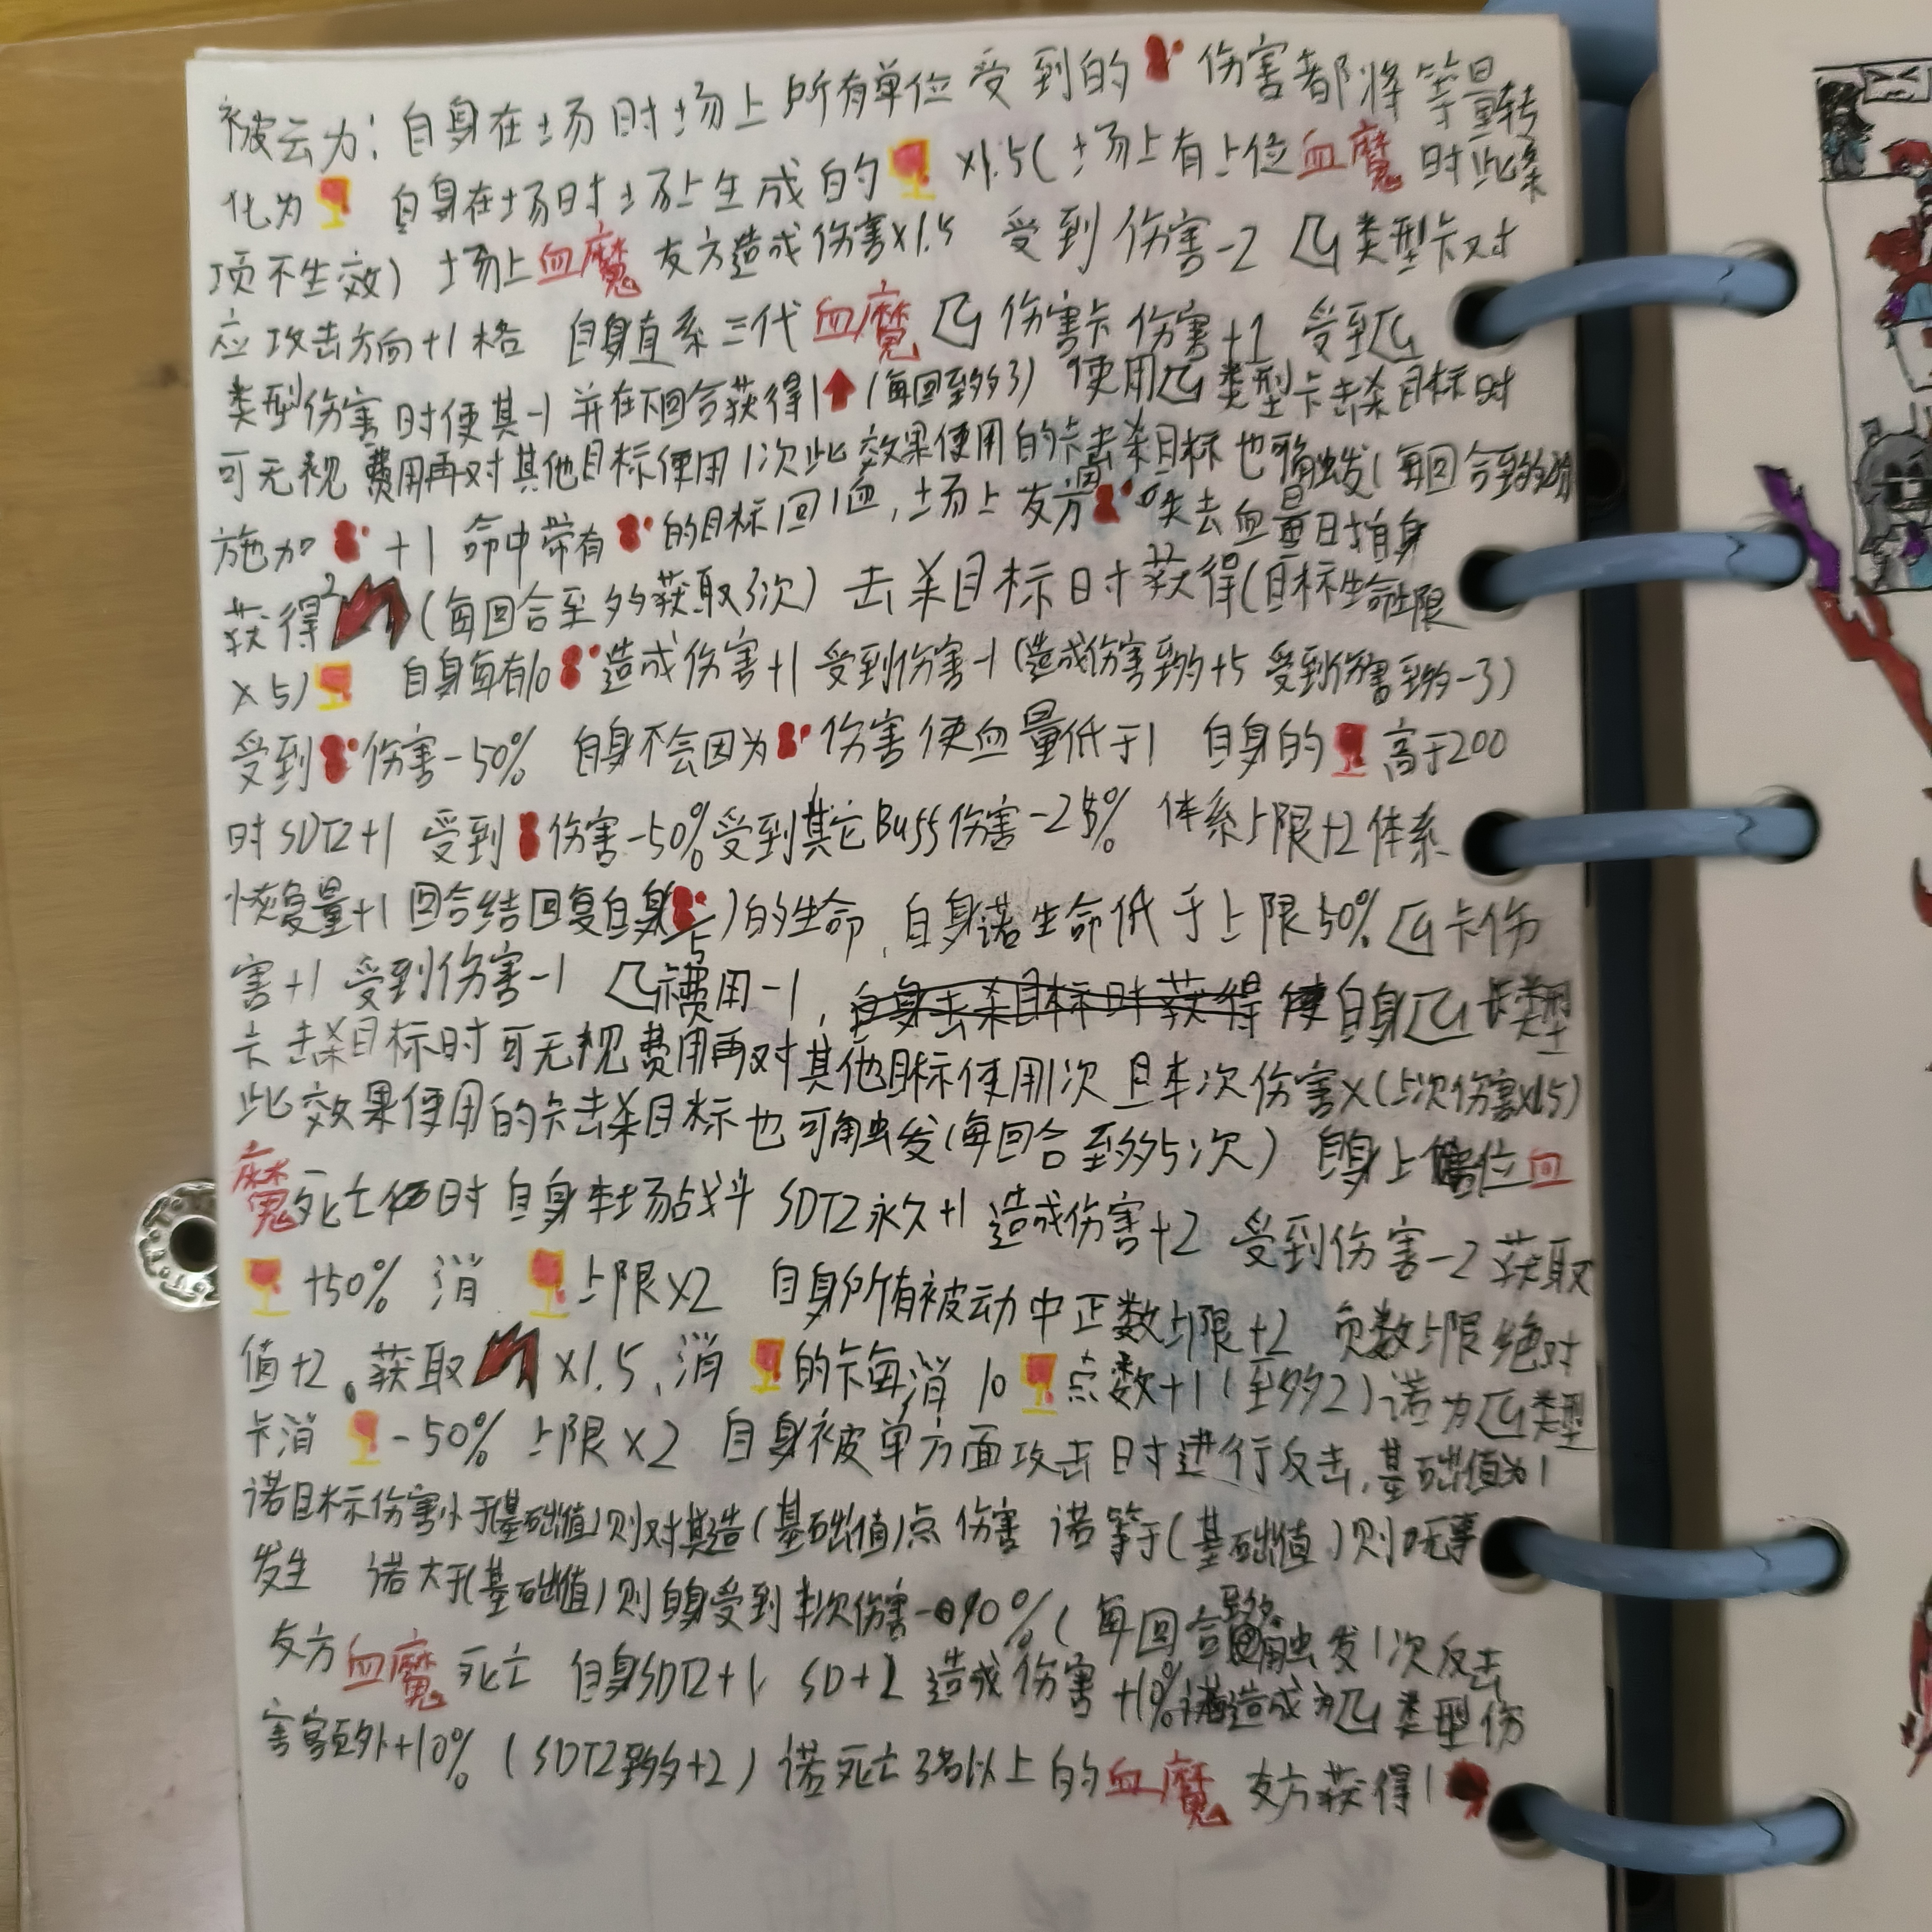 被动力：自身在场时场上所有单位受到的伤害都将等量转
化为 自身在场时场上生成的 ×1.5(场上有上位血魔时此条
项不生效) 场上血魔友方造成伤害×1.5 受到伤害-2 类型卡对
应攻击方向+1格 自身直系三代血魔 伤害卡伤害+1 受到
类型伤害时使其-1并在下回合获得1↑(每回至多3) 使用 类型卡击杀目标时
可无视费用再对其他目标使用1次此效果使用的卡击杀目标也可触发(每回合至多
施加 +1 命中带有 的目标回1血，场上友方 失去血量时自身
获得2 (每回合至多获取3次) 击杀目标时获得(目标生命上限
×5) 自身每有10 造成伤害+1 受到伤害-1(造成伤害至多+5 受到伤害至多-3)
受到 伤害-50% 自身不会因为 伤害使血量低于1 自身的 高于200
时SDT2+1 受到 伤害-50%受到其它Buff伤害-25% 体系上限+2体系
恢复量+1 回合结回复自身 /5)的生命，自身诺生命低于上限50% 卡伤
害+1 受到伤害-1 费用-1，自身击杀目标时获得 使自身 类型
卡击杀目标时可无视费用再对其他目标使用1次且本次伤害×(上次伤害×1.5)
此效果使用的卡击杀目标也可触发(每回合至多5次) 自身上位血
魔死亡时自身本场战斗SDT2永久+1 造成伤害+2 受到伤害-2 获取
+50% 消 上限×2 自身所有被动中正数上限+2 负数上限绝对
值+2。获取 ×1.5，消 的卡每消10 点数+1(至多2)诺为 类型
卡消 -50% 上限×2 自身被单方面攻击时进行反击，基础值为1
诺目标伤害小于(基础值)则对其造(基础值)点伤害 诺等于(基础值)则无事
发生 诺大于(基础值)则自身受到本次伤害-90%(每回合至多触发1次反击
友方血魔死亡 自身SDT2+1 SD+2 造成伤害+10%诺造成为 类型伤
害额外+10%(SDT2至多+2) 诺死亡3名以上的血魔 友方获得1